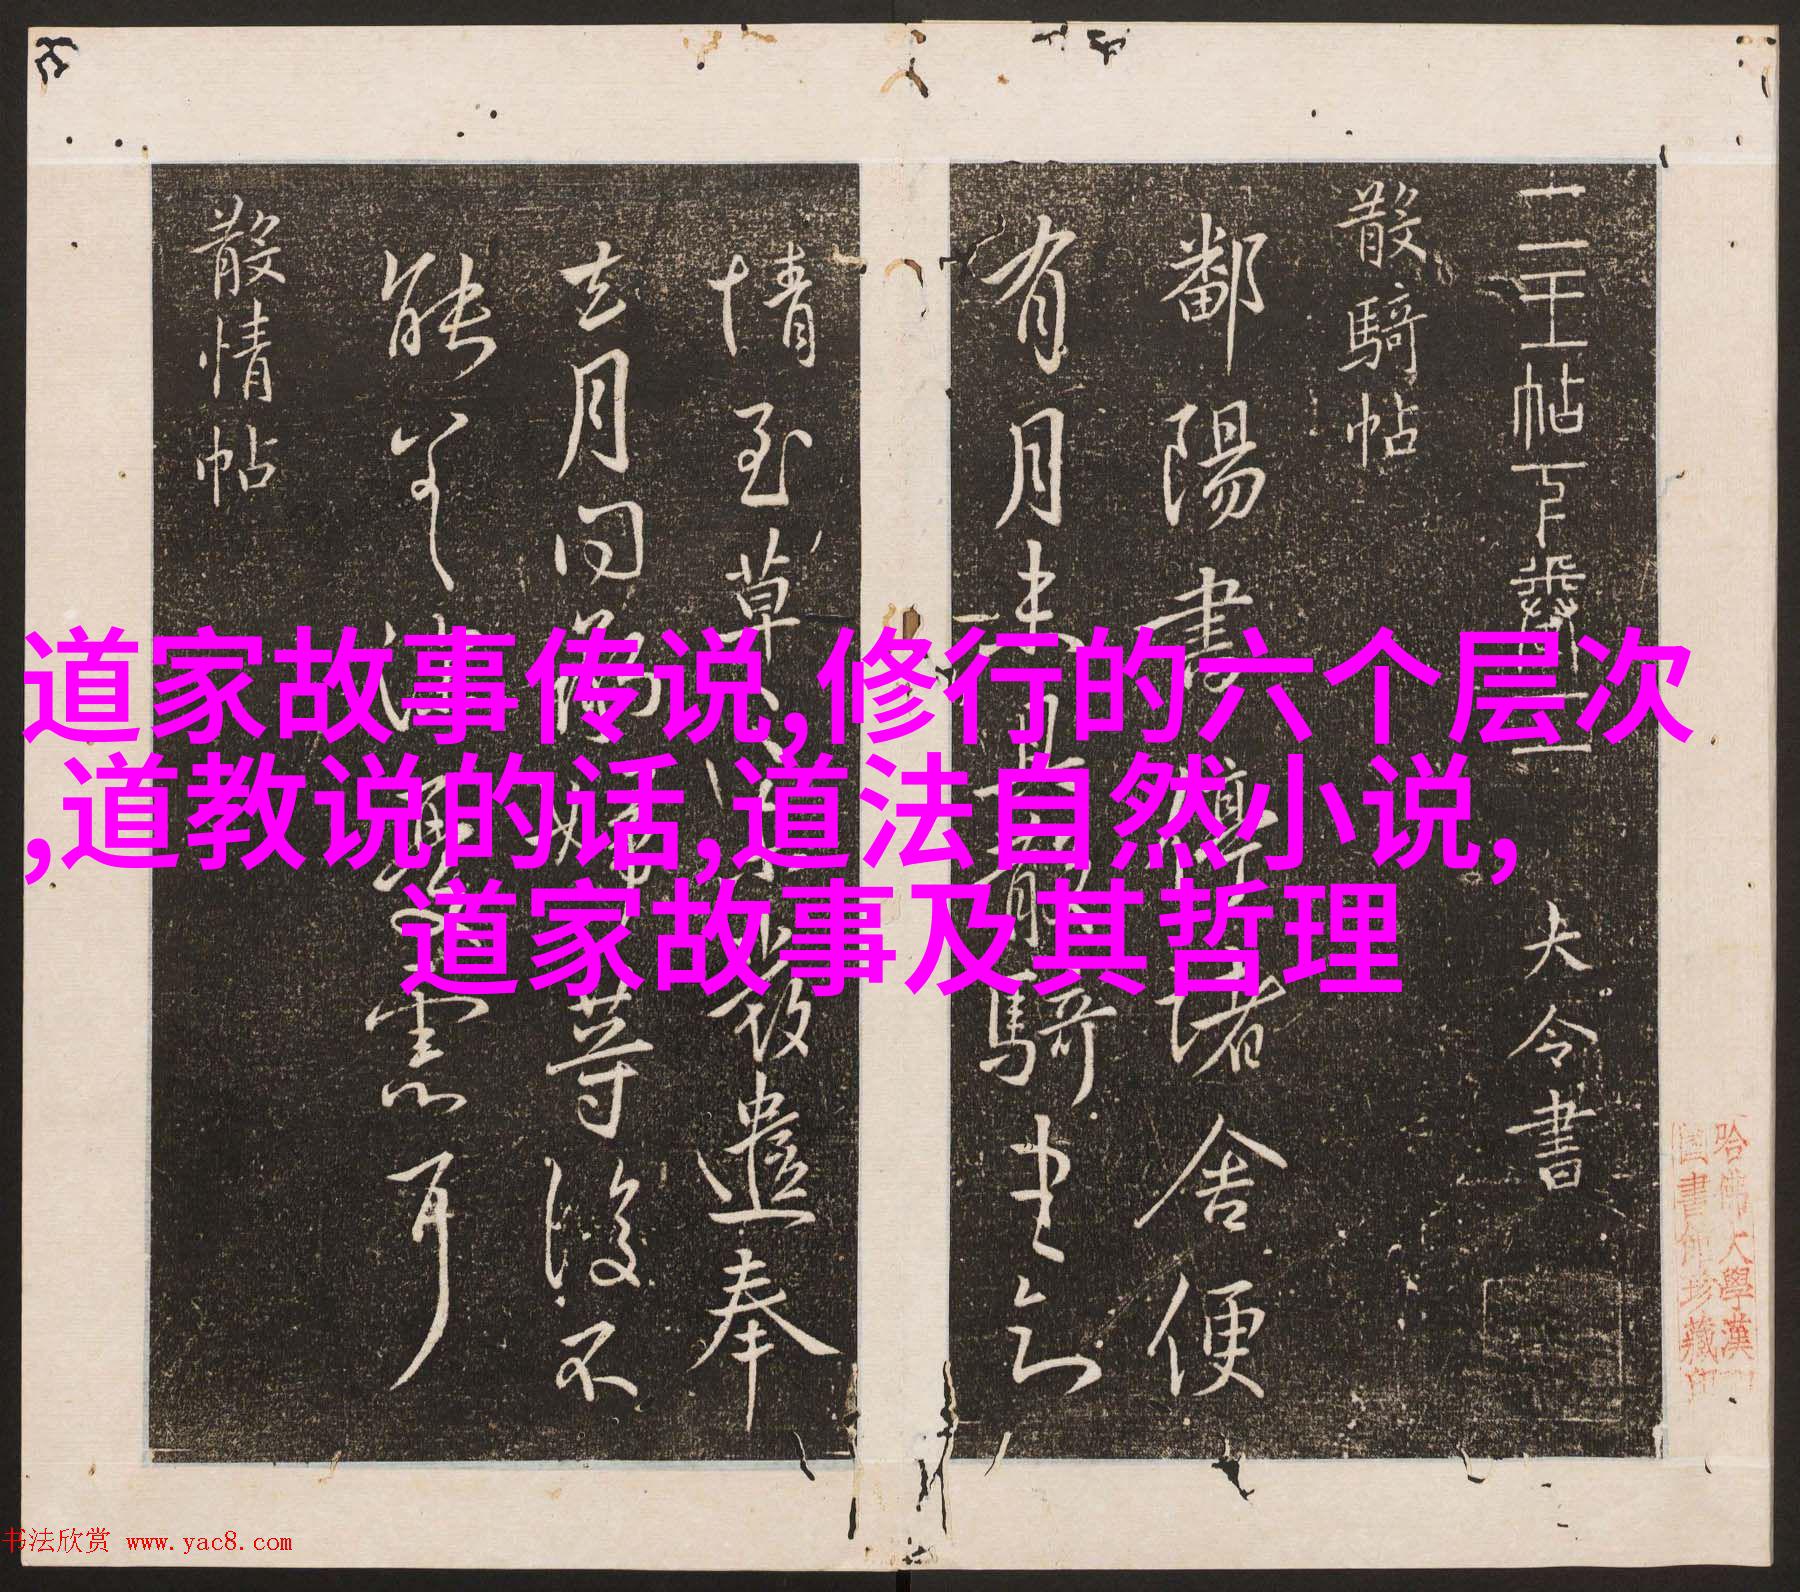 道家故事传说,修行的六个层次
,道教说的话,道法自然小说,
道家故事及其哲理
二王帖下卷
大令書
散騎帖
鄱陽書諸舍便
有月未騎
情至草遣奉
去月问等不
能惡耳
散情帖
哈佛大學漢
圖書館珍藏印
书法欣赏 www.yac8.com